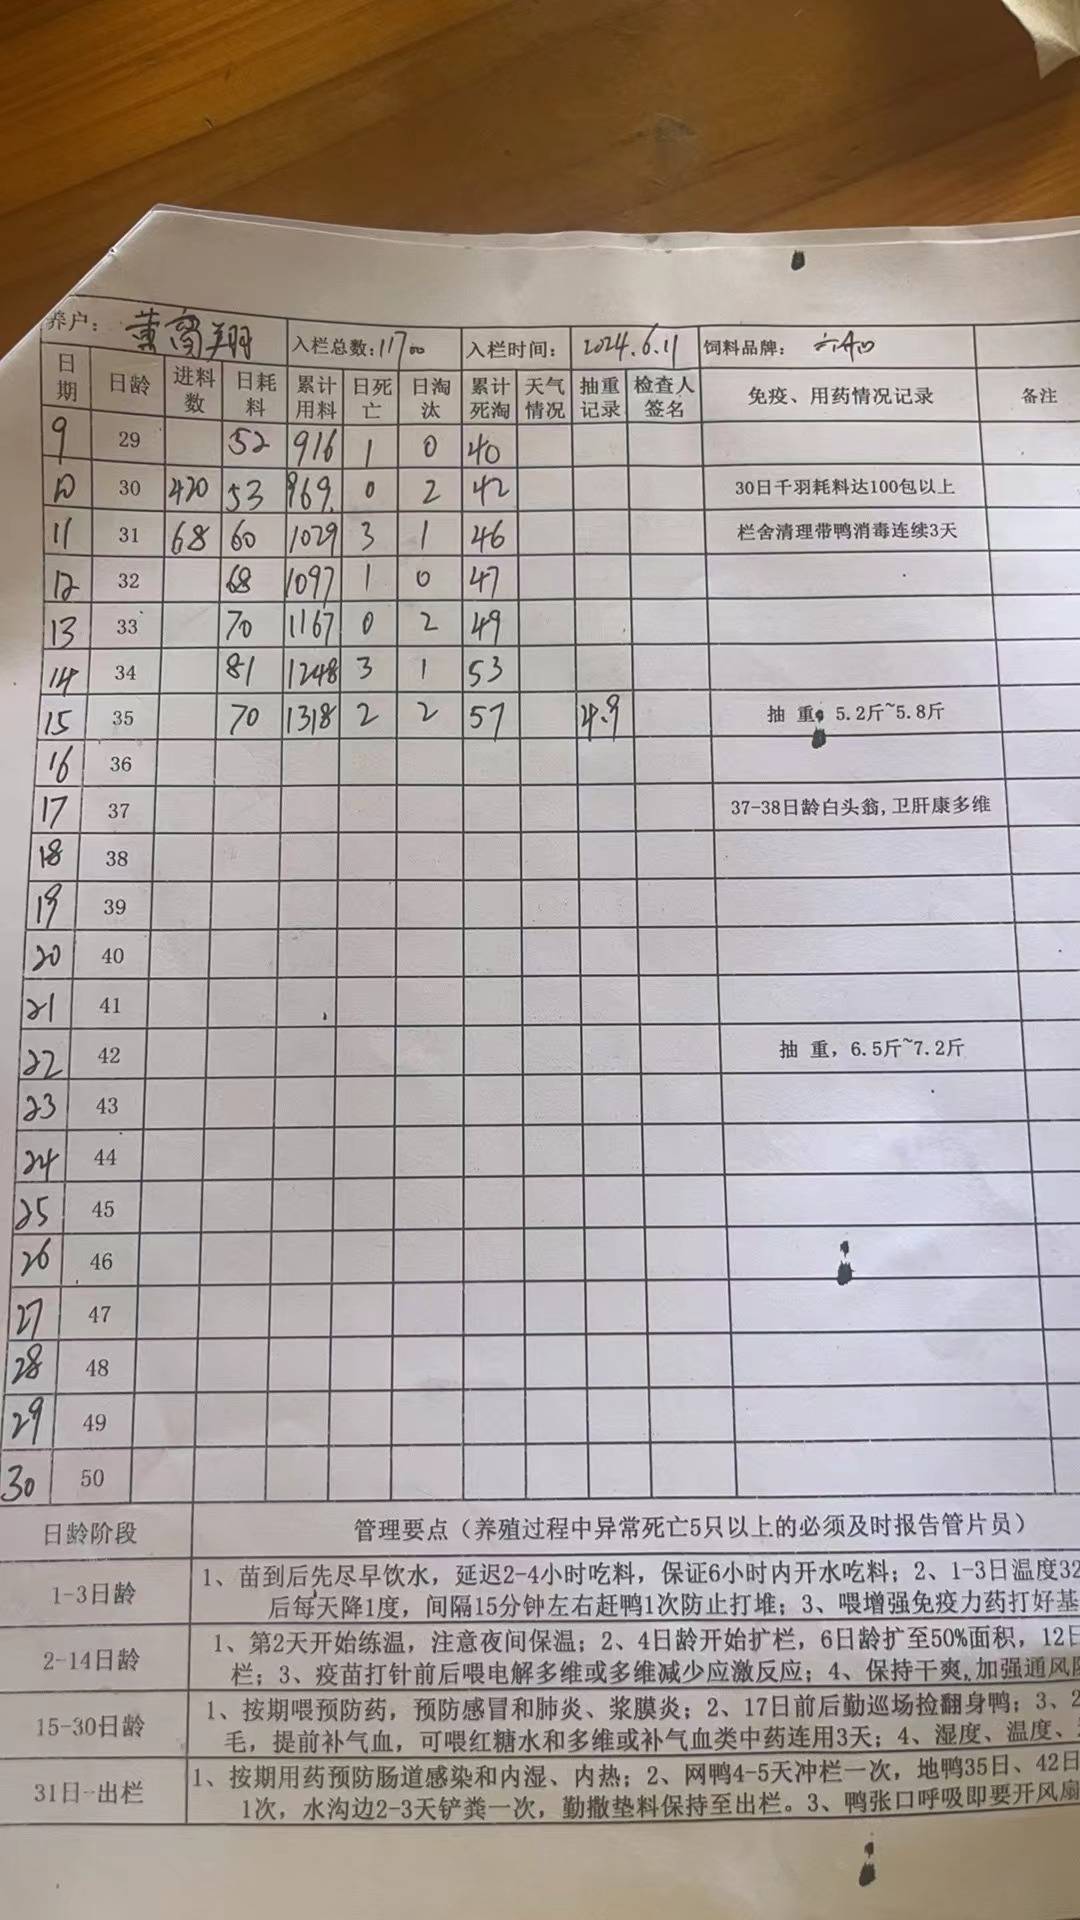 养户： 董富翔 入栏总数：11700 入栏时间： 2024.6.11 饲料品牌： 六和
日期 日龄 进料数 日耗料 累计用料 日死亡 日淘汰 累计死淘 天气情况 抽重记录 检查人签名 免疫、用药情况记录 备注
9 29 52 916 1 0 40
10 30 420 53 969. 0 2 42 30日千羽耗料达100包以上
11 31 68 60 1029 3 1 46 栏舍清理带鸭消毒连续3天
12 32 68 1097 1 0 47
13 33 70 1167 0 2 49
14 34 81 1248 3 1 53
15 35 70 1318 2 2 57 4.9 抽 重，5.2斤~5.8斤
16 36
17 37 37-38日龄白头翁,卫肝康多维
18 38
19 39
20 40
21 41
22 42 抽 重，6.5斤~7.2斤
23 43
24 44
25 45
26 46
27 47
28 48
29 49
30 50
日龄阶段 管理要点（养殖过程中异常死亡5只以上的必须及时报告管片员）
1-3日龄 1、苗到后先尽早饮水，延迟2-4小时吃料，保证6小时内开水吃料；2、1-3日温度32
后每天降1度，间隔15分钟左右赶鸭1次防止打堆；3、喂增强免疫力药打好基
2-14日龄 1、第2天开始练温，注意夜间保温；2、4日龄开始扩栏，6日龄扩至50%面积，12日
栏；3、疫苗打针前后喂电解多维或多维减少应激反应；4、保持干爽,加强通风
15-30日龄 1、按期喂预防药，预防感冒和肺炎、浆膜炎；2、17日前后勤巡场捡翻身鸭；3、2
毛，提前补气血，可喂红糖水和多维或补气血类中药连用3天；4、湿度、温度、
31日-出栏 1、按期用药预防肠道感染和内湿、内热；2、网鸭4-5天冲栏一次，地鸭35日、42日
1次，水沟边2-3天铲粪一次，勤撒垫料保持至出栏。3、鸭张口呼吸即要开风扇